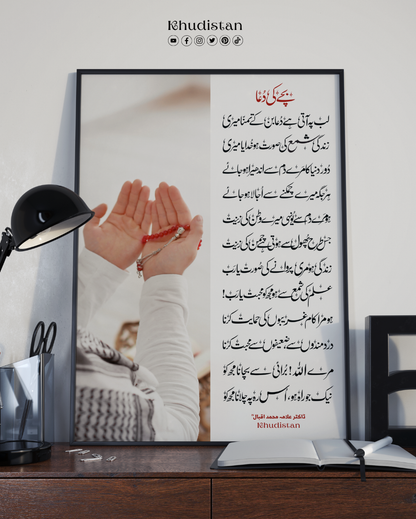 Khudistan
بچے کی دُعا
لب پہ آتی ہے دُعا بن کے تمنا میری
زندگی شمع کی صورت ہو خدایا میری
دُور دنیا کا مرے دَم سے اندھیرا ہو جائے
ہر جگہ میرے چمکنے سے اُجالا ہو جائے
ہو مرے دَم سے یونہی میرے وطن کی زینت
جس طرح پھول سے ہوتی ہے چمن کی زینت
زندگی ہو مری پروانے کی صورت یا رب
علم کی شمع سے ہو مجھ کو محبت یا رب!
ہو مرا کام غریبوں کی حمایت کرنا
دردمندوں سے ضعیفوں سے محبت کرنا
مرے اللہ! بُرائی سے بچانا مجھ کو
نیک جو راہ ہو، اُس رہ پہ چلانا مجھ کو
ڈاکٹر علامہ محمد اقبالؒ
Khudistan